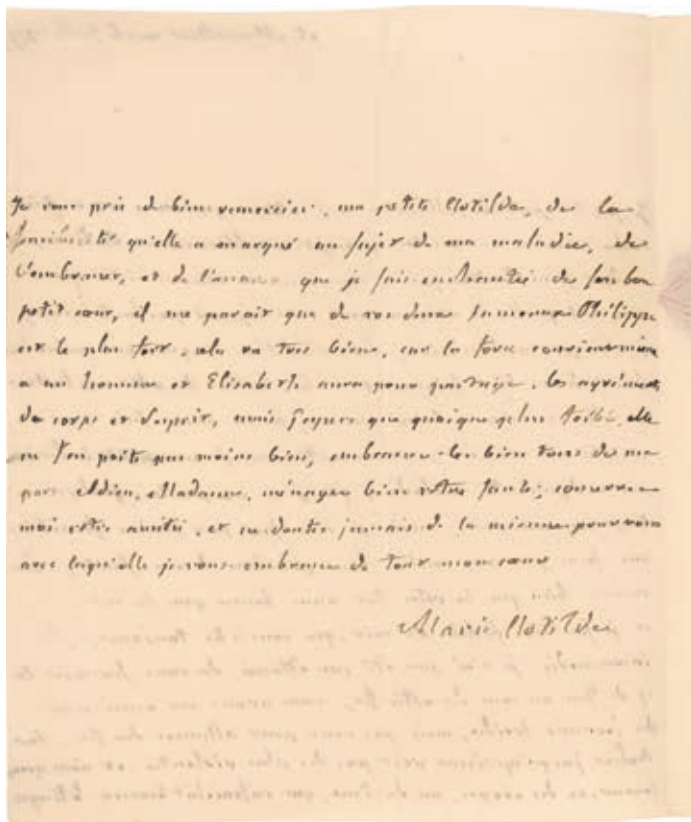 Je vous prie de bien remercier, ma petite Clotilde, de la
sensibilité qu'elle a marqué au sujet de ma maladie, de
l'embrasser, et de l'assurer que je suis enchantée de son bon
petit cœur, il me parait que de vos deux jumeaux Philippe
est le plus fort, cela va tres bien, car la force convient mieux
a un homme et Elisabeth aura pour partage, les agréments
du corps et d'esprit, mais j'espere que quoique plus foible elle
ne s'en porte pas moins bien, embrassez-les bien tous de ma
part Adieu, Madame, ménagez bien votre santé; conservez
moi votre amitié, et ne doutez jamais de la mienne pour vous
avec laquelle je vous embrasse de tout mon cœur
Marie Clotilde